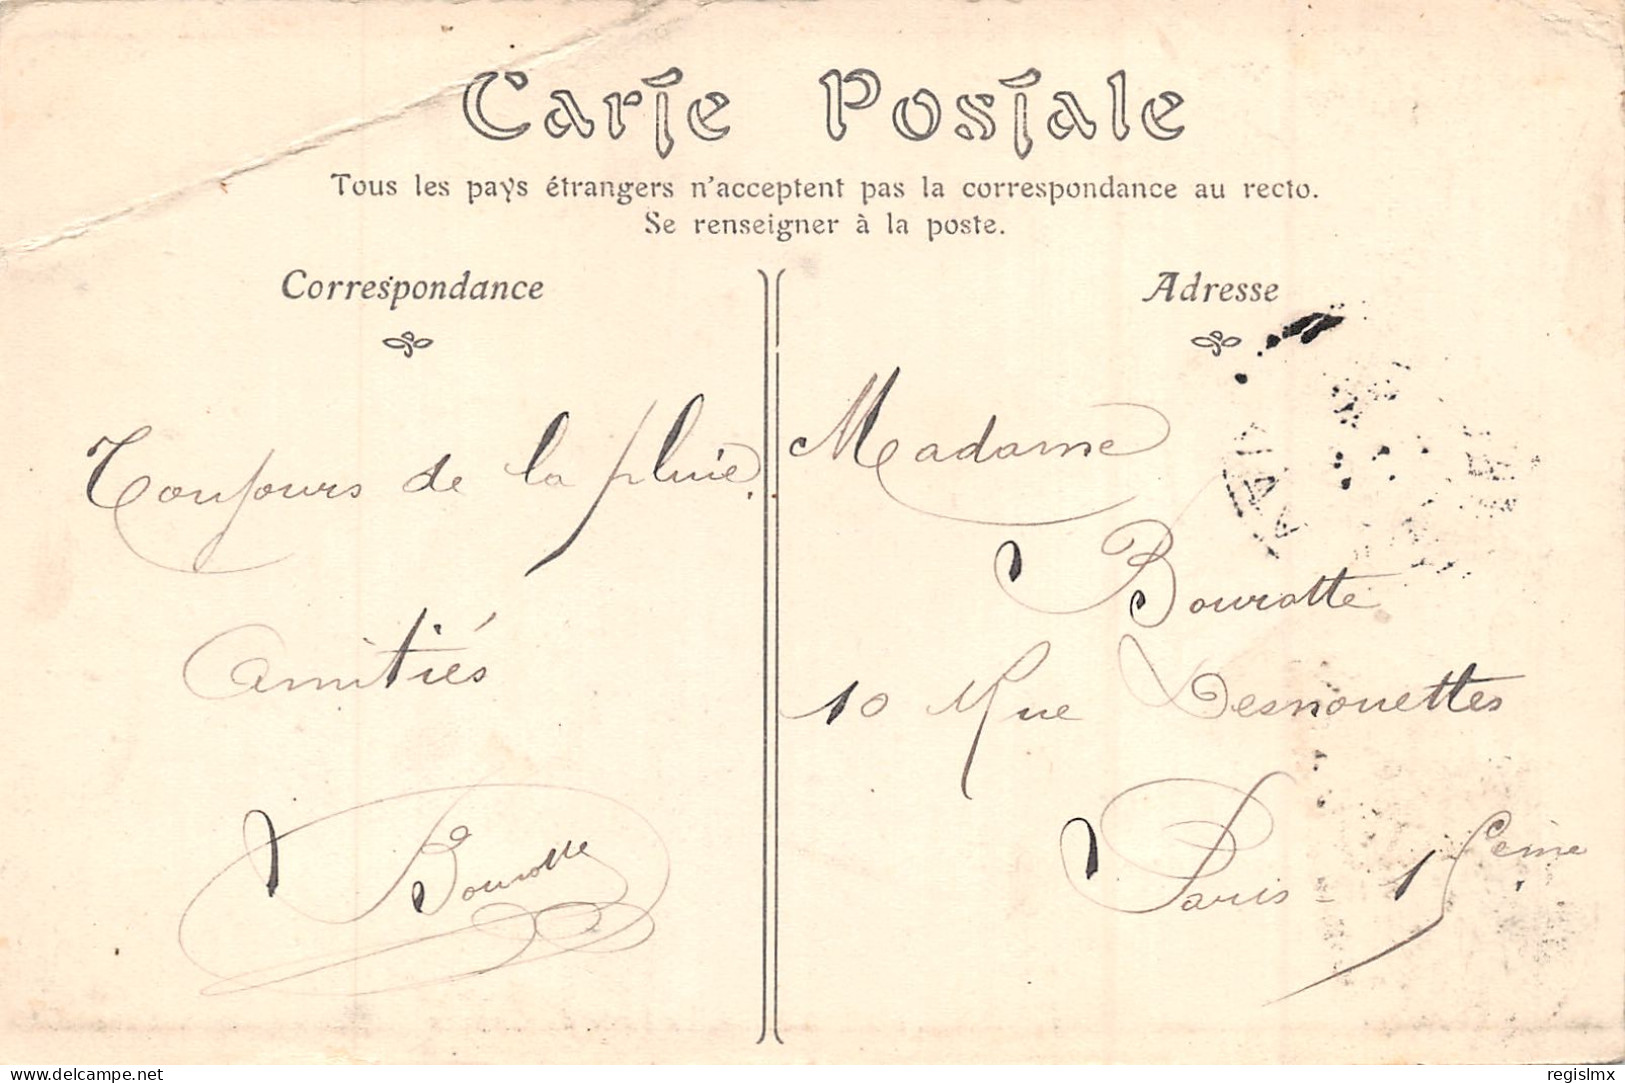 Carte Postale
Tous les pays étrangers n'acceptent pas la correspondance au recto.
Se renseigner à la poste.
Correspondance
Toujours de la pluie.
Amitiés
Bourotte
Adresse
Madame
Bourotte
10 Rue Desnouettes
Paris - 1 Seine
delcampe.net
regislmx